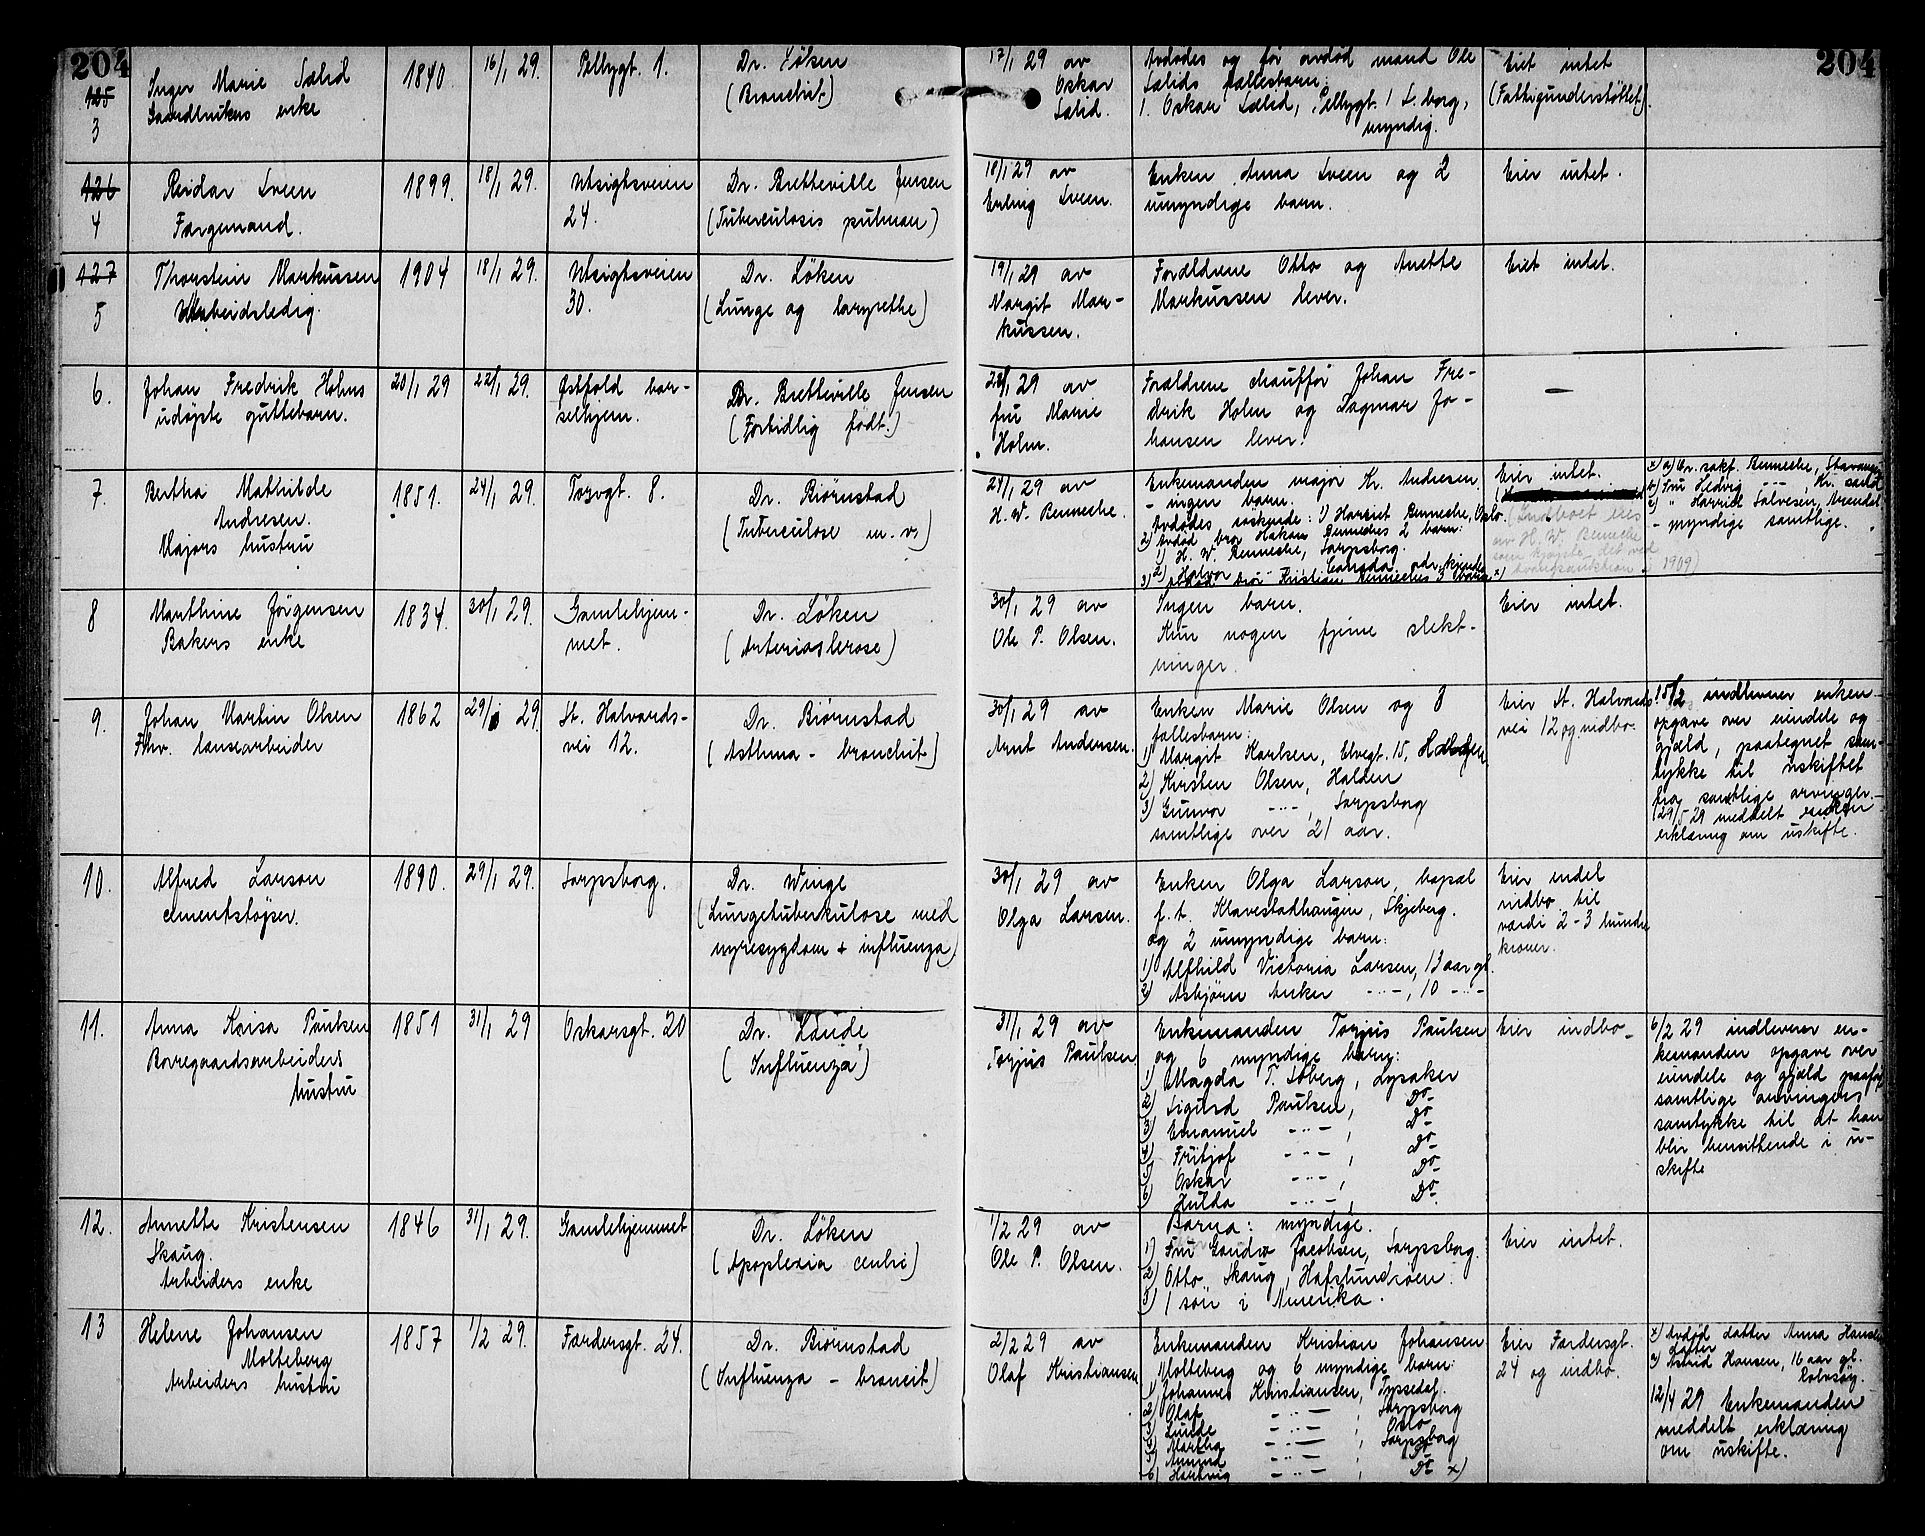 204
204
125
3
Inger Marie Sælid
Gaardbrukers enke
1840
16/1 29.
Pellygt. 1.
Dr. Løken
(Bronchit.)
17/1 29 av
Oskar
Sælid.
Avdødes og før avdød mand Ole
Sælids fællesbarn:
1. Oskar Sælid, Pellygt. 1 S. borg,
myndig.
Eiet intet
(Fattigunderstøttet).
126
4
Reidar Sveen
Færgemand.
1899.
18/1 29.
Utsigtsveien
24.
Dr. Bretteville Jensen
(Tuberculosis pulmon)
18/1 29 av
Erling Sveen.
Enken Anna Sveen og 2
umyndige barn.
Eier intet.
127
5
Thorstein Markussen
Arbeidsledig.
1904
18/1 29.
Utsigtsveien
30.
Dr. Løken
(Lunge og larynxtbc)
19/1 29 av
Margit Mar-
kussen.
Forældrene Otto og Anette
Markussen lever.
Eiet intet.
6.
Johan Fredrik Holms
udøpte guttebarn.
20/1 29
22/1 29.
Østfold bar-
selhjem.
Dr. Bretteville Jensen
(Fortidlig født.)
23/1 29 av
fru Marie
Holm.
Forældrene chauffør Johan Fre-
drik Holm og Dagmar Jo-
hansen lever.
—
7.
Bertha Mathilde
Andresen.
Majors hustru
1851.
24/1 29.
Torvgt. 8.
Dr. Biørnstad
(Tuberculose m. v.)
24/1 29 av
H. W. Benneche.
Enkemanden major Kr. Andresen
- ingen barn.
Avdødes søskende: 1) Harriet Benneche, Oslo
2) Avdød bror Håkon Benneches 2 barn:
1) H. W. Benneche, Sarpsborg.
2) Halvor -"- Canada, adr. ukjendt
3) Avdød bror Kristian Benneches 3 barn x)
Eier intet.
(Indboet eies
av H. W. Benneche
som kjøpte det ved
tvangsauktion i 1909)
x) a) Or. sakf. Benneche, Stavanger
b) Fru Hedvig -"-, Kr. sand
c) " Harriet Salvesen, Arendal
- myndige samtlige.
8
Marthine Jörgensen
Bakers enke
1834.
30/1 29.
Gamlehjem-
met.
Dr. Løken
(Arterioslerose)
30/1 29 av
Ole P. Olsen.
Ingen barn.
Kun nogen fjerne slekt-
ninger.
Eier intet.
9.
Johan Martin Olsen
Fhv. lensearbeider
1862
29/1 29
St. Halvards-
vei 12.
Dr. Biørnstad
(Asthma - bronchit)
30/1 29 av
Arnt Andersen.
Enken Marie Olsen og 3
fællesbarn:
1) Margit Karlsen, Elvegt. 15, Halden
2) Kirsten Olsen, Halden
3) Gunvor -"-, Sarpsborg
samtlige over 21 aar.
Eier St. Halvards
vei 12 og indbo.
15/2 indleverer enken
opgave over eiendele og
gjæld, paategnet sam-
tykke til uskiftet
fra samtlige arvinger.-
29/5-29 meddelt enken
erklæring om uskifte.
10.
Alfred Larson
cementstøper.
1890.
29/1 29.
Sarpsborg.
Dr. Winge
(Lungetuberkulose med
nyresygdom + influenza)
30/1 29 av
Olga Larsen.
Enken Olga Larson, bopæl
f. t. Klavestadhaugen, Skjeberg.
og 2 umyndige barn:
1) Alfhild Victoria Larsen, 13 aar gl.
2) Asbjörn Anker -"-, 10 -"-
Eier endel
indbo til
værdi 2-3 hundre
kroner.
11.
Anna Kaisa Paulsen
Borregaardsarbeiders
hustru
1851
31/1 29
Oskarsgt. 20
Dr. Laude
(Influenza)
31/1 29 av
Torjus Paulsen
Enkemanden Torjus Paulsen
og 6 myndige barn:
1) Magda T. Soberg, Lysaker
2) Sigurd Paulsen, Do
3) Emanuel -"-, Do
4) Fritjof -"-, Do
5) Oskar -"-, Do
6) Hulda -"-, Do
Eier indbo -
6/2 29 indleverer en-
kemanden opgave over
eiendele og gjæld paaført
samtlige arvingers
samtykke til at han
blir hensittende i u-
skifte
12.
Annette Kristensen
Skaug.
Arbeiders enke
1846
31/1 29.
Gamlehjemmet
Dr. Løken
(Apoplexia cerebri)
1/2 29 av
Ole P. Olsen.
Barna: myndige.
1) Fru Gauda Jacobsen, Sarpsborg.
2) Otto Skaug, Hafslundsöen.
3) 1 søn i Amerika.
Eier intet.
13
Helene Johansen
Molteberg
Arbeiders hustru
1857
1/2 29.
Færdersgt. 24.
Dr. Biørnstad
(Influenza - broncit)
2/2 29 av
Olaf Kristiansen
Enkemanden Kristian Johansen
Molteberg og 6 myndige barn:
1) Johannes Kristiansen, Tyssedal.
2) Olaf -"-, Sarpsborg
3) Lunde -"-, Oslo
4) Martha -"-, Sarpsborg
5) Amund -"-, Do
6) Hartvig -"-, Do x)
Eier Færdersgt.
24 og indbo.
x) Avdød datter Anna Hansens
datter
Astrid Hansen, 16 aar gl.
Rolvsöy.
12/4 29 Enkemanden
meddelt erklæring
om uskifte.